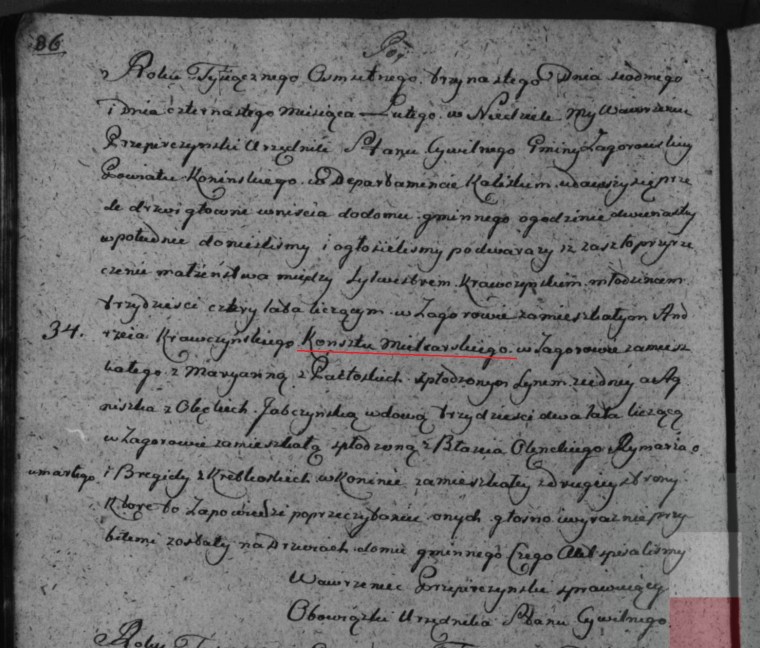 86
Roku Tysiącznego Osmsetnego trzynastego Dnia siodmego
i dnia czternastego Miesiąca Lutego w Niedziele My Wawrzeniec
Przepirczynski Urzędnik Stanu Cywilnego Gminy Zagorowskiy
Powiatu Koninskiego w Departamencie Kaliskim udawszy się prze
de drzwi głowne wniscia do domu gminnego o godzinie dwunasty
w południe doniesliśmy i ogłosieliśmy podwa razy iż zaszło przyrze
czenie małżeństwa między Sylwestrem Krawczyńskim młodzianem
trzydzieści cztery lata liczącym w Zagorowie zamieszkałym And
34. rzeia Krawczyńskiego Konsztu Mielcarskiego w Zagorowie zamiesz
kałego z Maryanną z Pałtoskich spłodzonym Synem zedney a Ag
niszka z Olęckich Jabczyńską wdową trzydzieści dwa lata liczącą
w Zagorowie zamieszkałą spłodzoną z Błazia Olęnckiego Rymarza
umarłego i Bregidy z w Koninie zamieszkałey z drugiey strony
Ktore to Zapowiedzi po przeczytaniu onych głosno i wyraznie przy
bitemi zostały na Drzwiach domu gminnego Czego Akt spisaliśmy
Wawrzeniec Przepirczynski sprawuiący
Obowiązki Urzędnika Stanu Cywilnego
Roku